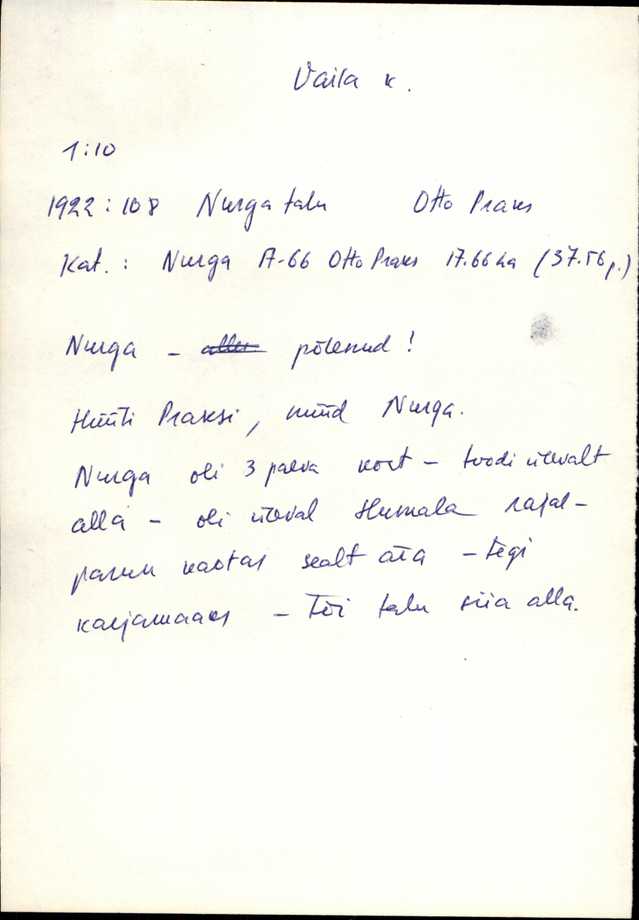 Vaila k.
1:10
1922:108 Nurga talu Otto Praks
Kat.: Nurga A-66 Otto Praks 17.66 ha (37.56 p.)
Nurga – põlenud!
Hüüti Praksi, nüüd Nurga.
Nurga oli 3 päeva koht – toodi ülevalt
alla – oli üleval Humala rajal –
parun kaotas sealt ära – tegi
karjamaaks – Tõi talu siia alla.